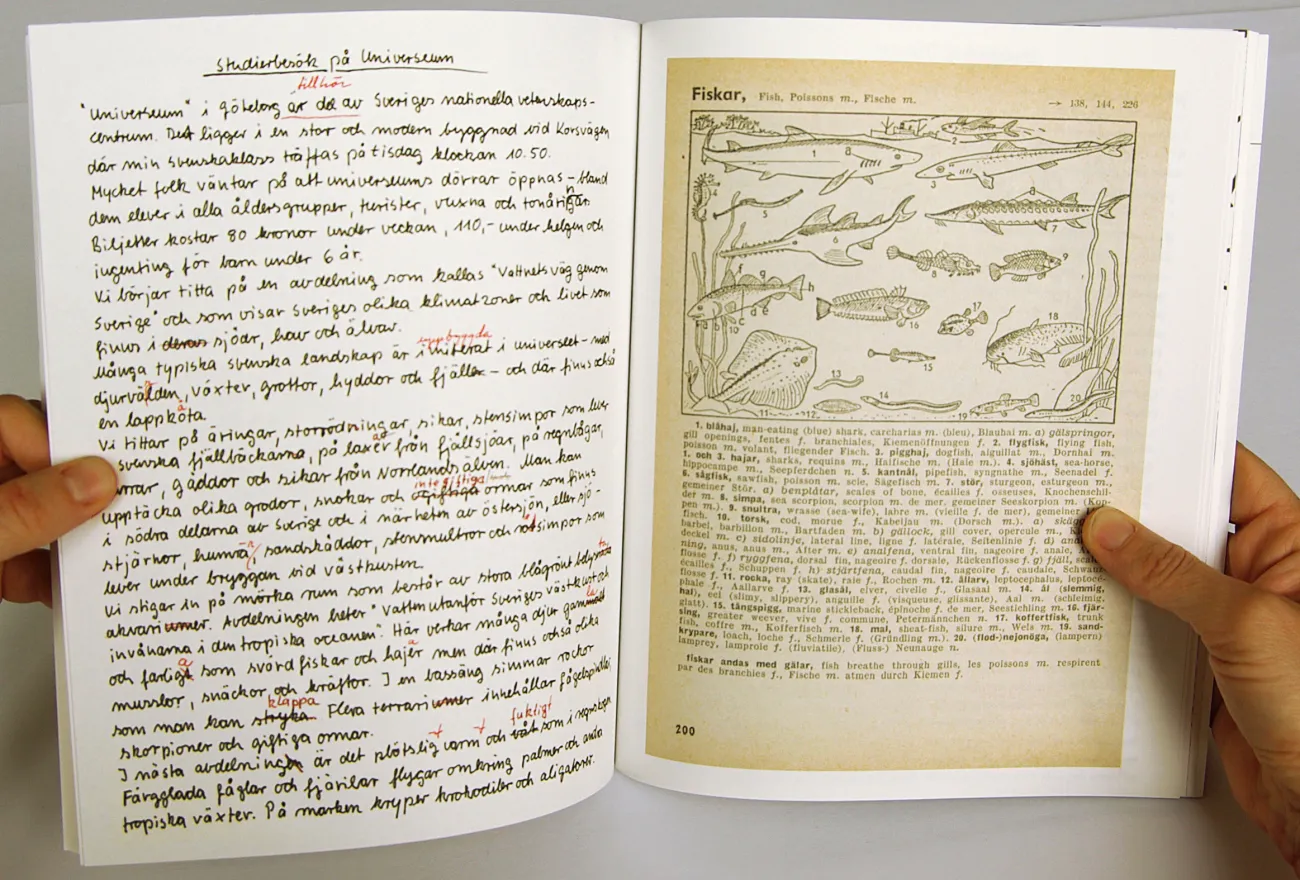 Studierbesök på Universeum
tillhör
"Universeum" i Göteborg är del av Sveriges nationella vetenskaps-
centrum. Det ligger i en stor och modern byggnad vid Korsvägen
där min svenskaklass träffas på tisdag klockan 10.50.
Mycket folk väntar på att universeums dörrar öppnas – bland
dem elever i alla åldersgrupper, turister, vuxna och tonåringar.
Biljetter kostar 80 kronor under veckan, 110,- under helgen och
ingenting för barn under 6 år.
Vi börjar titta på en avdelning som kallas "Vattnets väg genom
Sverige" och som visar Sveriges olika klimatzoner och livet som
finns i deras sjöar, hav och älvar.
inbyggda
Många typiska svenska landskap är imiterat i universeet – med
djurvärlden, växter, grottor, hyddor och fjäller – och där finns också
en lappkåta.
Vi tittar på äringar, storrödningar, sikar, stensimpor som lever
i svenska fjällbäckarna, på laxer från fjällsjöar, på regnbågar,
gäddor och sikar från Norrlandsälven. Man kan
integiftiga
upptäcka olika grodor, snokar och ogiftiga ormar som finns
i södra delarna av Sverige och i närheten av östersjön, eller sjö-
stjärnor, humra, sandskäddor, stensmultror och rötsimpor som
lever under bryggan vid västkusten.
Vi stigar in på mörka rum som består av stora blågrönt belysnata
akvariumer. Avdelningen heter "Vatten utanför Sveriges västkust och
invånarna i den tropiska oceanen". Här verkar många djur gammel
och farligt som svärdfiskar och hajer men där finns också olika
musslor, snäckor och kräftor. I en bassäng simmar rockor
klappa
som man kan stryka. Flera terrariumer innehållar fågelspindlar,
skorpioner och giftiga ormar.
fuktigt
I nästa avdelningen är det plötslig varm och våt som i regnskogen
Färgglada fåglar och fjärilar flygar omkring palmer och andra
tropiska växter. På marken kryper krokodiler och aligatorer.
Fiskar, Fish, Poissons m., Fische m. → 138, 144, 226
1 8 2 3 4 5 6 7 a 8 9
f g h a b c d e 10 16 17 18
15 13 14 11 12 19 20
1. blåhaj, man-eating (blue) shark, carcharias m. (bleu), Blauhai m. a) gälspringor,
gill openings, fentes f. branchiales, Kiemenöffnungen f. 2. flygfisk, flying fish,
poisson m. volant, fliegender Fisch. 3. pigghaj, dogfish, aiguillat m., Dornhai m.
1. och 3. hajar, sharks, requins m., Haifische m. (Haie m.). 4. sjöhäst, sea-horse,
hippocampe m., Seepferdchen n. 5. kantnål, pipefish, syngnathe m., Seenadel f.
6. sågfisk, sawfish, poisson m. scie, Sägefisch m. 7. stör, sturgeon, esturgeon m.,
gemeiner Stör. a) benplåtar, scales of bone, écailles f. osseuses, Knochenschil-
der m. 8. simpa, sea scorpion, scorpion m. de mer, gemeiner Seeskorpion m. (Kop-
pen m.). 9. snultra, wrasse (sea-wife), labre m. (vieille f. de mer), gemeiner
fisch. 10. torsk, cod, morue f., Kabeljau m. (Dorsch m.). a)
barbel, barbillon m., Bartfaden m. b) gällock, gill cover, opercule m.,
deckel m. c) sidolinje, lateral line, ligne f. latérale, Seitenlinie f. d)
ning, anus, anus m., After m. e) analfena, ventral fin, nageoire f. anale,
flosse f. f) ryggfena, dorsal fin, nageoire f. dorsale, Rückenflosse f. g) fjäll,
écailles f., Schuppen f. h) stjärtfena, caudal fin, nageoire f. caudale,
flosse f. 11. rocka, ray (skate), raie f., Rochen m. 12. ållarv, leptocephalus, leptocé-
phale f., Aallarve f. 13. glasål, elver, civelle f., Glasaal m. 14. ål (slemmig,
hal), eel (slimy, slippery), anguille f. (visqueuse, glissante), Aal m. (schleimig,
glatt). 15. tångspigg, marine stickleback, épinoche f. de mer, Seestichling m. 16. fjär-
sing, greater weever, vive f. commune, Petermännchen n. 17. koffertfisk, trunk
fish, coffre m., Kofferfisch m. 18. mal, sheat-fish, silure m., Wels m. 19. sand-
krypare, loach, loche f., Schmerle f. (Gründling m.). 20. (flod-)nejonöga, (lampern)
lamprey, lamproie f. (fluviatile), (Fluss-) Neunauge n.
fiskar andas med gälar, fish breathe through gills, les poissons m. respirent
par des branchies f., Fische m. atmen durch Kiemen f.
200